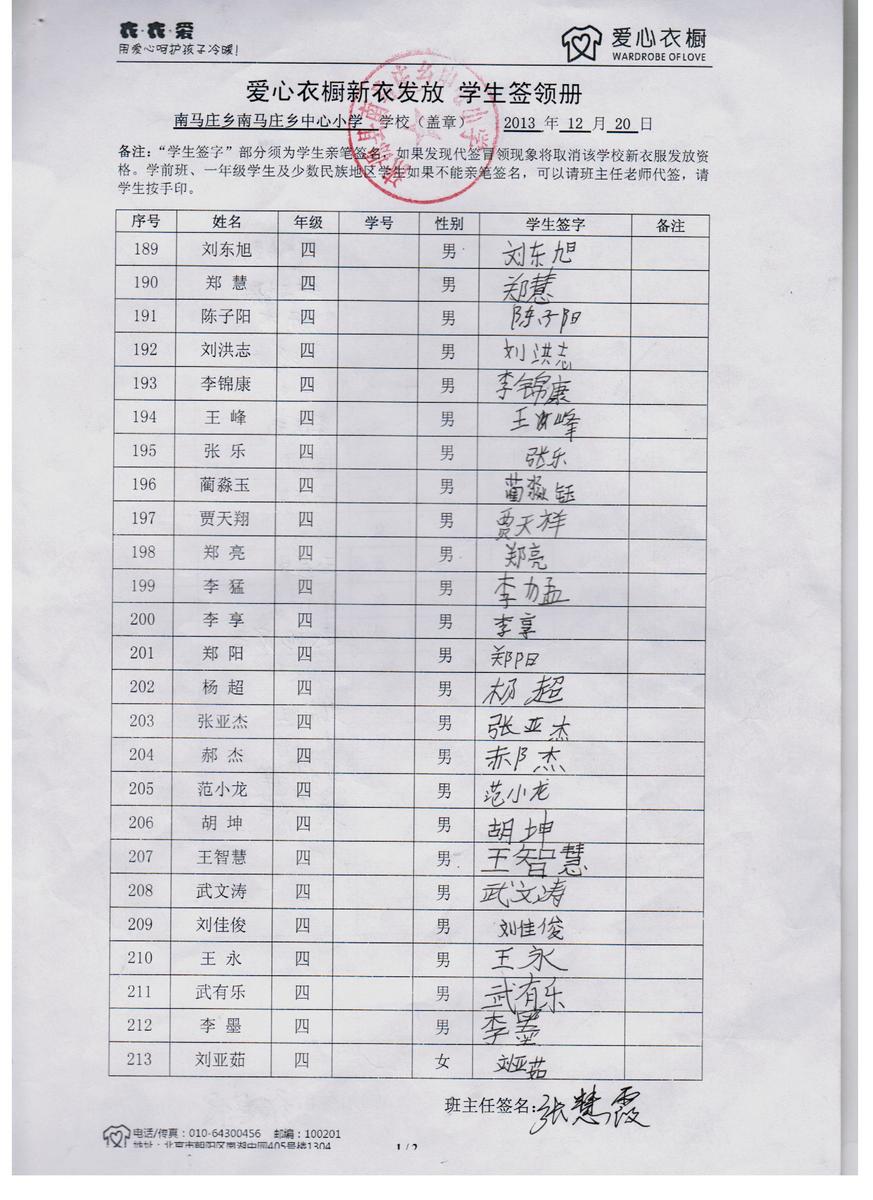 衣·衣·爱
用爱心呵护孩子冷暖!
爱心衣橱
WARDROBE OF LOVE
爱心衣橱新衣发放 学生签领册
南马庄乡南马庄乡中心小学 学校（盖章） 2013 年 12 月 20 日
备注：“学生签字”部分须为学生亲笔签名，如果发现代签冒领现象将取消该学校新衣服发放资
格。学前班、一年级学生及少数民族地区学生如果不能亲笔签名，可以请班主任老师代签，请
学生按手印。
序号 姓名 年级 学号 性别 学生签字 备注
189 刘东旭 四 男 刘东旭
190 郑 慧 四 男 郑慧
191 陈子阳 四 男 陈子阳
192 刘洪志 四 男 刘洪志
193 李锦康 四 男 李锦康
194 王 峰 四 男 王 峰
195 张 乐 四 男 张乐
196 蔺淼玉 四 男 蔺淼钰
197 贾天翔 四 男 贾天祥
198 郑 亮 四 男 郑亮
199 李 猛 四 男 李
200 李 享 四 男 李享
201 郑 阳 四 男 郑阳
202 杨 超 四 男 杨超
203 张亚杰 四 男 张亚杰
204 郝 杰 四 男 郝杰
205 范小龙 四 男 范小龙
206 胡 坤 四 男 胡坤
207 王智慧 四 男 王智慧
208 武文涛 四 男 武文涛
209 刘佳俊 四 男 刘佳俊
210 王 永 四 男 王永
211 武有乐 四 男 武有乐
212 李 墨 四 男 李墨
213 刘亚茹 四 女 刘亚茹
班主任签名: 张慧霞
电话/传真：010-64300456 邮编：100201
地址：北京市朝阳区南湖中园405号楼1304
1 / 2